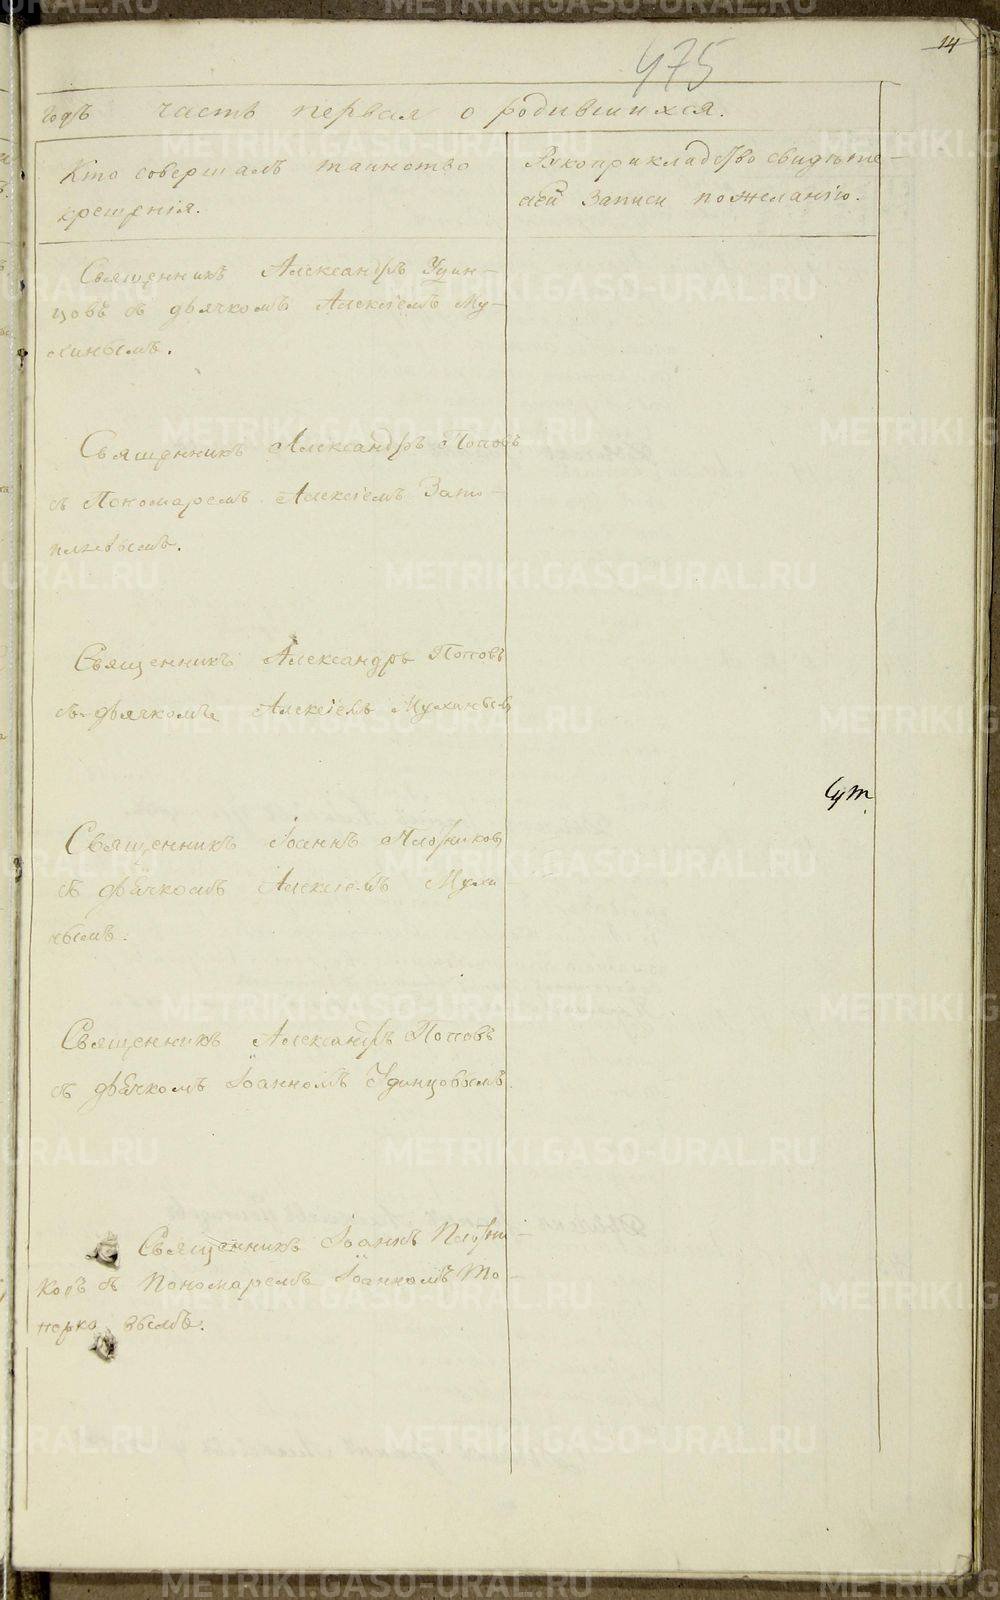 14
475
годъ часть первая о родившихся.
Кто совершалъ таинство
крещенія.
Рукоприкладство свидѣте-
лей записи пожеланію.
Священникъ Александръ Удин-
цовъ съ дьячкомъ Алексіемъ Му-
хинымъ.
Священникъ Александръ Поповъ
съ Пономаремъ Алексіемъ
Священникъ Александръ Поповъ
съ дьячкомъ Алексіемъ Мухинымъ
Священникъ Іоаннъ Плотниковъ
съ дьячкомъ Алексіемъ Мухи-
нымъ.
Священникъ Александръ Поповъ
съ дьячкомъ Іоанномъ Удинцовымъ.
Священникъ Іоаннъ Плотни-
ковъ съ Пономаремъ Іоанномъ То-
порковымъ.
METRIKI.GASO-URAL.RU